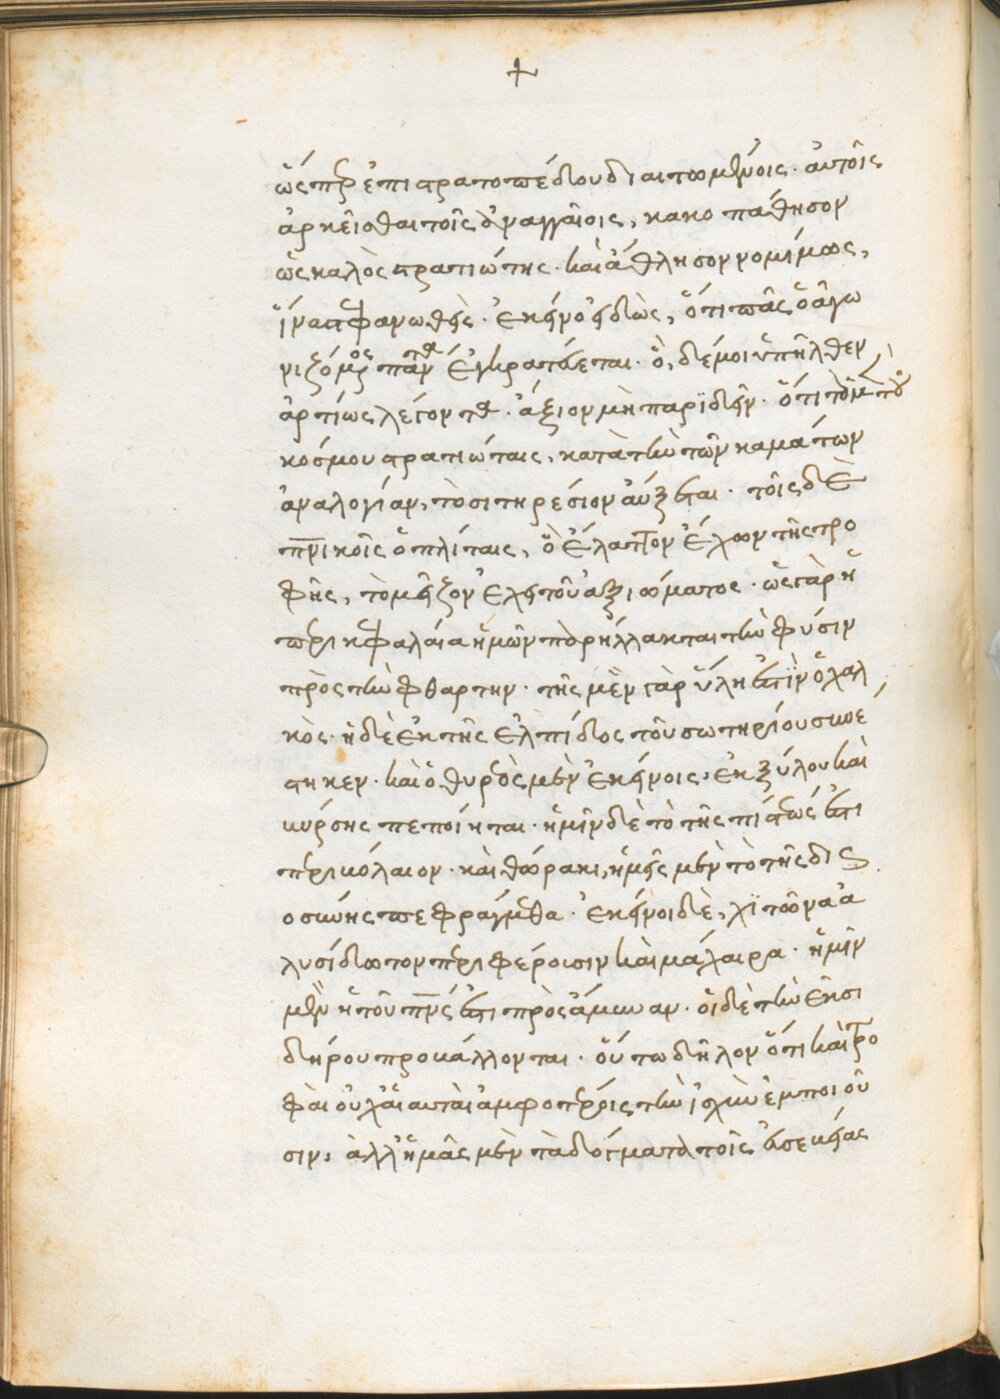 +
ὥσπερ ἐπὶ στρατοπέδου διαιτωμένοις· αὐτοῖς
ἀρκεῖσθαι τοῖς ἀναγκαίοις, κακοπάθησον
ὡς καλὸς στρατιώτης· καὶ ἄθλησον νομίμως,
ἵνα στεφανωθῆς· ἐκεῖνο εἰδὼς, ὅτι πᾶς ὁ ἀγω
νιζόμενος πάντα ἐγκρατεύεται. ὃ, δέ μοι ὑπῆλθεν
ἀρτίως λέγοντα· ἄξιον μὴ παρϊδεῖν· ὅτι τοῖς μὲν τοῦ
κόσμου στρατιώταις, κατὰ τὴν τῶν καμάτων
ἀναλογίαν, τὸ σιτηρέσιον αὔξεται· τοῖς δὲ
πνικοῖς ὁπλίταις, ὁ ἔλαττον ἔχων τῆς τρο
φῆς, τὸ μεῖζον ἔχει τοῦ ἀξιώματος· ὡς γὰρ ἡ
περικεφαλαία ἡμῶν παρήλλακται τὴν φύσιν
πρὸς τὴν φθαρτην· τῆς μὲν γὰρ ὕλη ἐστὶν ὁ χαλ
κὸς· ἡ δὲ ἐκ τῆς ἐλπίδος τοῦ σωτηρίου συνέ
στηκεν· καὶ ὁ θυρεὸς μὲν ἐκείνοις, ἐκ ξύλου καὶ
βύρσης πεποίηται· ἡμῖν δὲ τὸ τῆς πίστεώς ἐστι
περιβόλαιον· καὶ θώρακι, ἡμεῖς μὲν τὸ τῆς δι
οσύνης πεφράγμεθα· ἐκεῖνοι δὲ, χϊτῶνα ἁ
λυσιδωτὸν περιφέρουσιν καὶ μάχαιρα· ἡμῖν
μὲν ἡ τοῦ πνς ἐστι πρὸς ἄμυναν· οἱ δὲ τὴν ἐκ σι
δήρου προβάλλονται· οὕτω δῆλον ὅτι καὶ τρο
φαὶ οὐχ αἱ αὐταὶ ἀμφοτέροις τὴν ἰσχὺν ἐμποιοῦ
σιν, ἀλλ' ἡμᾶς μὲν τὰ δόγματα τοῖς εὐσεβείας